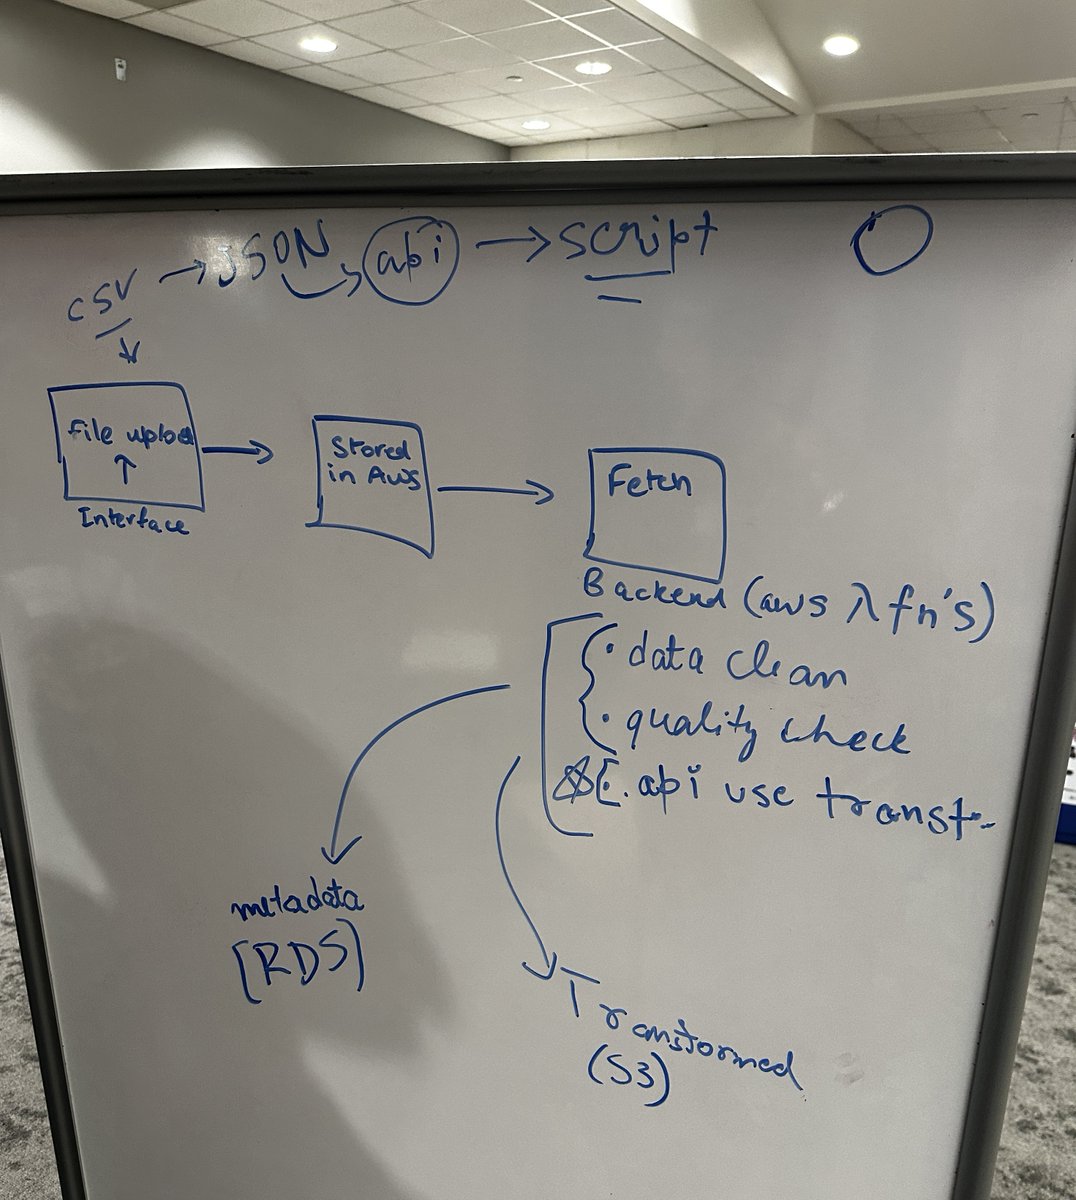 csv → JSON api → script
file upload
↑
Interface
Stored
in Aws
Fetch
Backend (aws λ fn's)
• data clean
• quality check
E. api use transf--
metadata
[RDS]
Transformed
(S3)